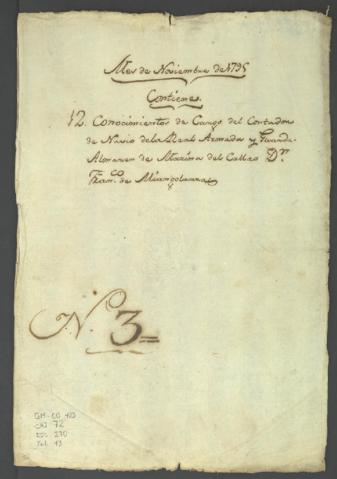 Mes de Noviembre de 1795
Contiene.
12. Conocimientos de Cargo del Contador
de Navio de la Real Armada y Guarda-
Almacen de Marina del Callao Dn.
Franco. de
N. 3=
72